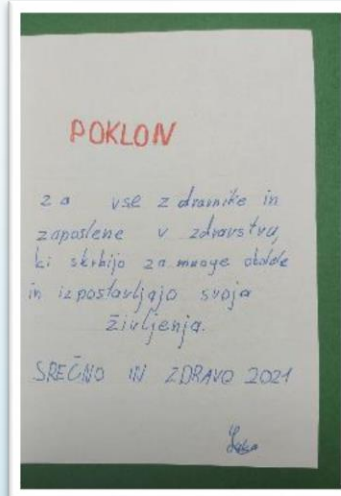 POKLON
za vse zdravnike in
zaposlene v zdravstvu,
ki skrbijo za mnoge obolele
in izpostavljajo svoja
življenja.
SREČNO IN ZDRAVO 2021